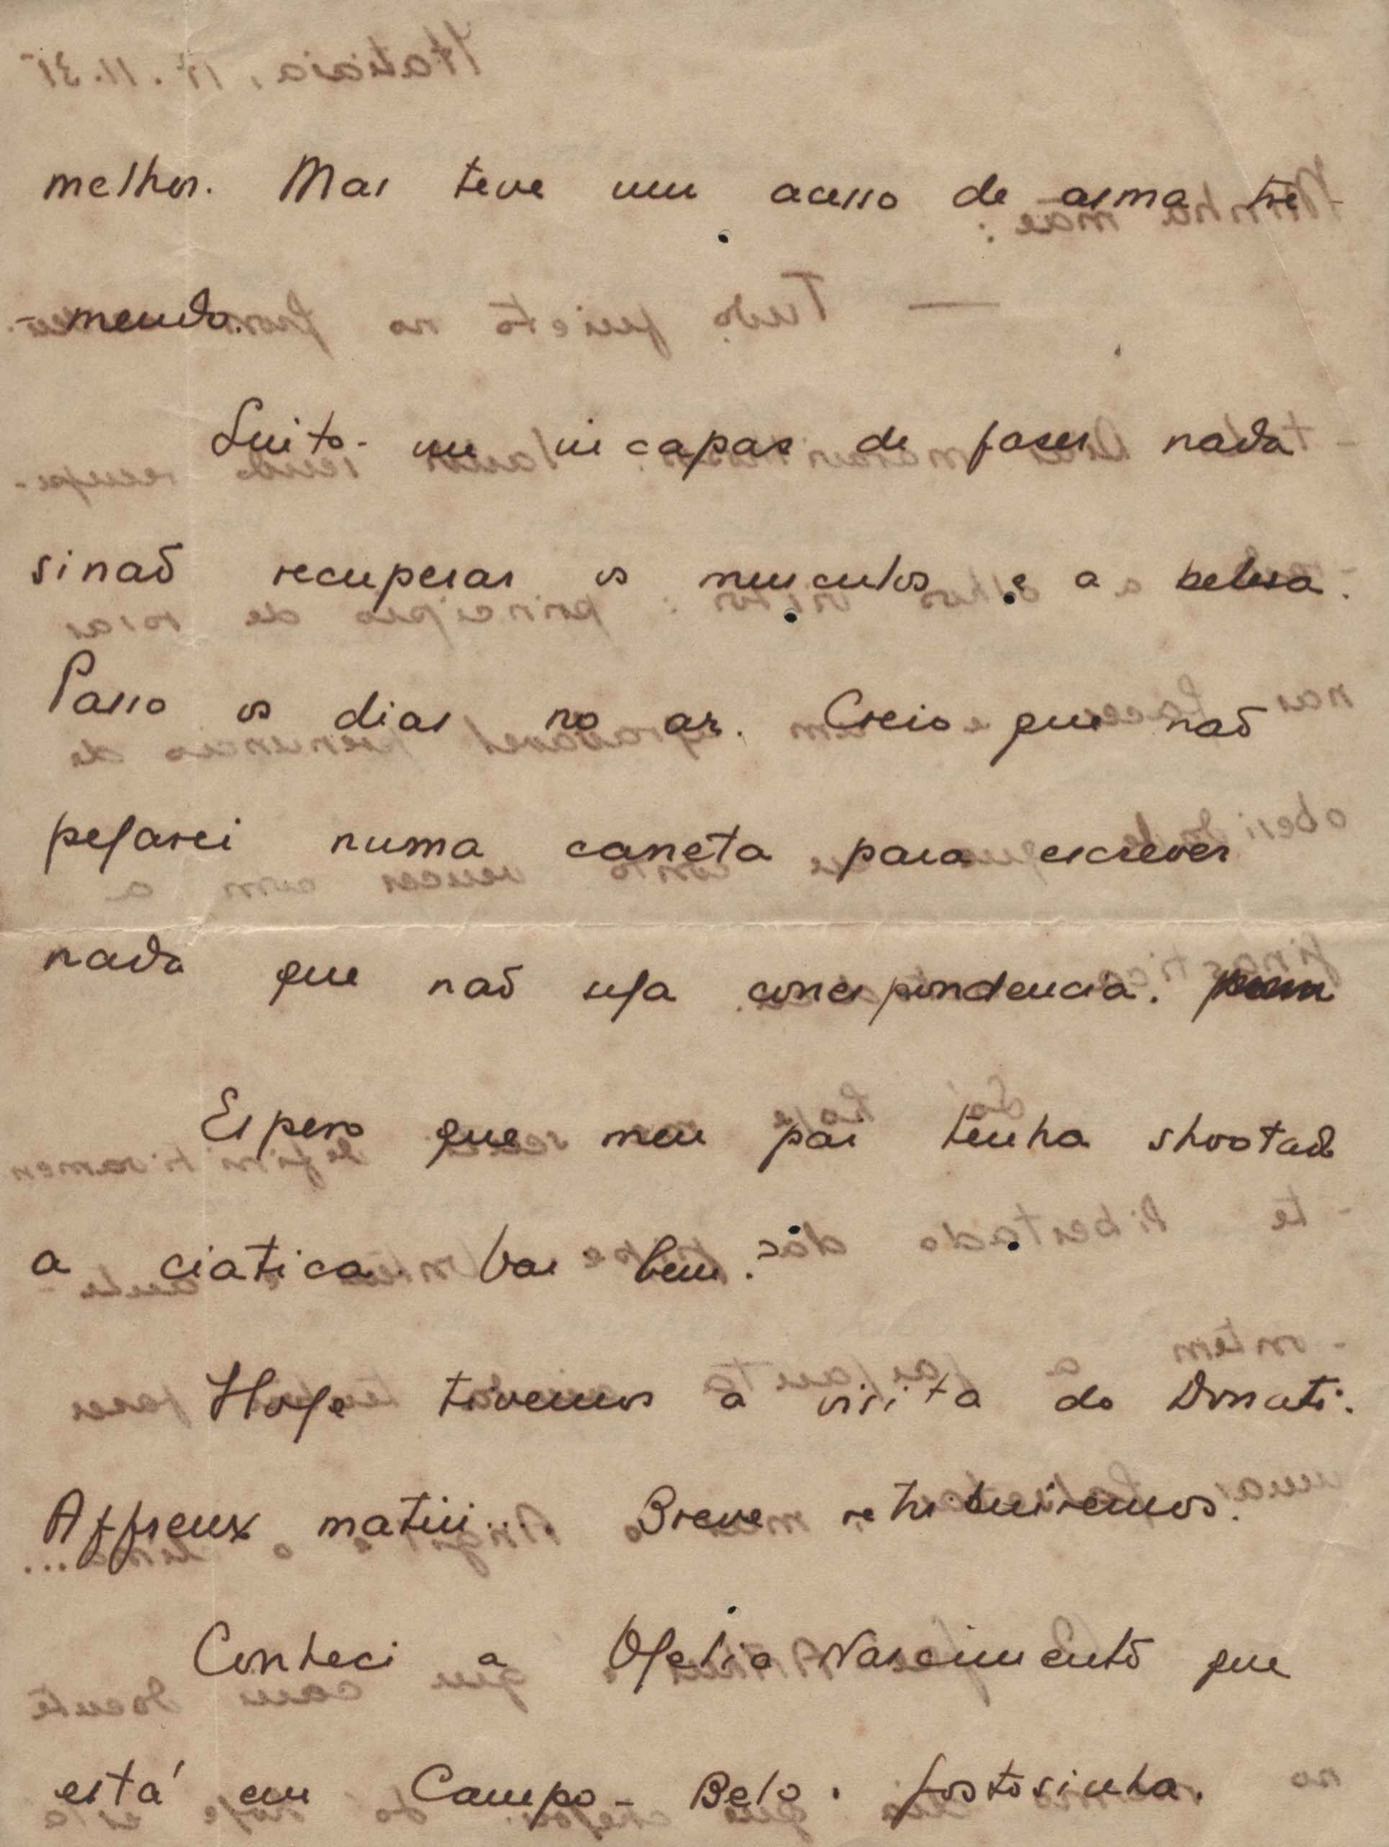 melhor. Mas teve um acesso de asma tre-
-mendo.
Sinto-me incapas de faser nada
sinaõ recuperar os musculos e a belesa.
Passo os dias no ar. Creio que naõ
pegarei numa caneta para escrever
nada que naõ seja correspondencia.
Espero que meu pai tenha shootado
a ciatica. Vai bem?
Hoje tivemos a visita do Donati.
Affreux matin... Breve retribuiremos.
Conheci a Ofelia Nascimento que
está em Campo-Belo. Gostosinha.